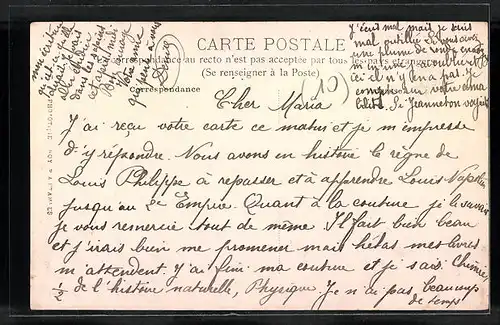 CARTE POSTALE
La Correspondance au recto n'est pas acceptée par tous les pays étrangers
(Se renseigner à la Poste)
Correspondance
Cher Maria
J'ai reçu votre carte ce matin et je m'empresse
d'y répondre. Nous avons en histoire le règne de
Louis Philippe à repasser et à apprendre Louis Napoléon
jusqu'au 2e Empire. Quant à la couture je le savais
je vous remercie tout de même. Il fait bien beau
et j'irais bien me promener mais hélas mes livres
m'attendent. J'ai fini ma couture et je sais Chimie,
1/2 de l'histoire naturelle, Physique. Je n'ai pas beaucoup
de temps
J'écris mal mais je suis
mal outillée
une plume de ronde
ici il n'y en a pas. Je
votre ama
bilité. Si Jeanneton
mon écriture